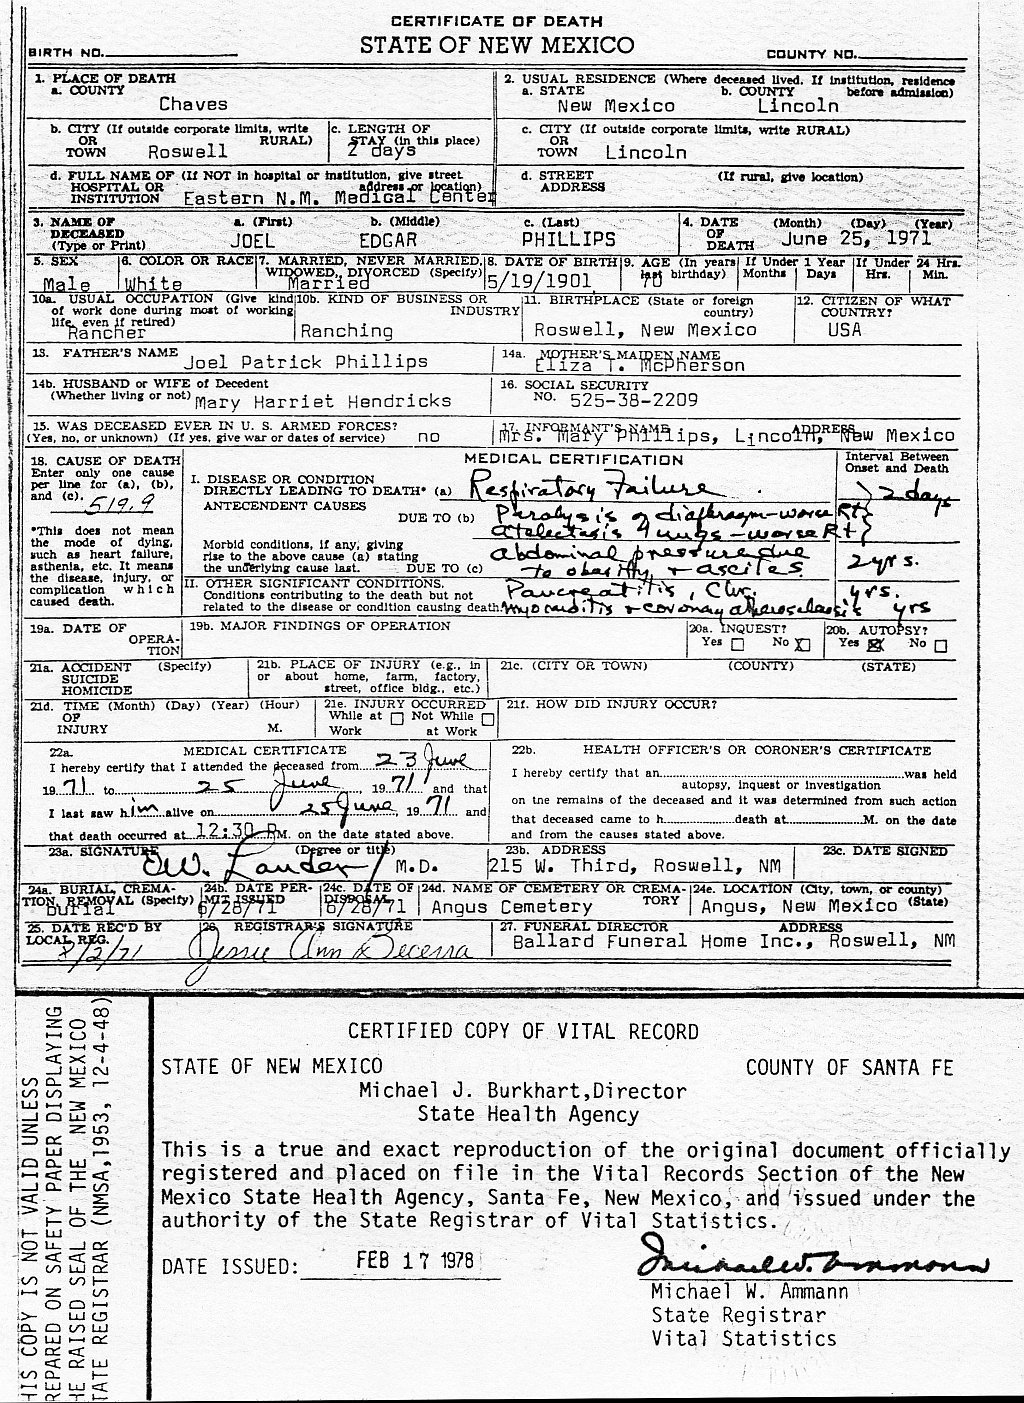 CERTIFICATE OF DEATH
STATE OF NEW MEXICO
BIRTH NO.
COUNTY NO.
1. PLACE OF DEATH
a. COUNTY
Chaves
2. USUAL RESIDENCE (Where deceased lived. If institution, residence before admission)
a. STATE
New Mexico
b. COUNTY
Lincoln
b. CITY (If outside corporate limits, write RURAL)
OR
TOWN Roswell
c. LENGTH OF STAY (in this place)
2 days
c. CITY (If outside corporate limits, write RURAL)
OR
TOWN Lincoln
d. FULL NAME OF (If NOT in hospital or institution, give street address or location)
HOSPITAL OR
INSTITUTION Eastern N.M. Medical Center
d. STREET ADDRESS (If rural, give location)
3. NAME OF DECEASED (Type or Print)
a. (First) JOEL
b. (Middle) EDGAR
c. (Last) PHILLIPS
4. DATE OF DEATH (Month) (Day) (Year)
June 25, 1971
5. SEX
Male
6. COLOR OR RACE
White
7. MARRIED, NEVER MARRIED, WIDOWED, DIVORCED (Specify)
Married
8. DATE OF BIRTH
5/19/1901
9. AGE (In years last birthday)
70
If Under 1 Year
Months Days
If Under 24 Hrs.
Hrs. Min.
10a. USUAL OCCUPATION (Give kind of work done during most of working life, even if retired)
Rancher
10b. KIND OF BUSINESS OR INDUSTRY
Ranching
11. BIRTHPLACE (State or foreign country)
Roswell, New Mexico
12. CITIZEN OF WHAT COUNTRY?
USA
13. FATHER'S NAME
Joel Patrick Phillips
14a. MOTHER'S MAIDEN NAME
Eliza T. McPherson
14b. HUSBAND or WIFE of Decedent
(Whether living or not) Mary Harriet Hendricks
16. SOCIAL SECURITY
NO. 525-38-2209
15. WAS DECEASED EVER IN U. S. ARMED FORCES?
(Yes, no, or unknown) (If yes, give war or dates of service) no
17. INFORMANT'S NAME ADDRESS
Mrs. Mary Phillips, Lincoln, New Mexico
18. CAUSE OF DEATH
Enter only one cause per line for (a), (b), and (c).
519.9
*This does not mean the mode of dying, such as heart failure, asthenia, etc. It means the disease, injury, or complication which caused death.
MEDICAL CERTIFICATION
Interval Between Onset and Death
I. DISEASE OR CONDITION
DIRECTLY LEADING TO DEATH* (a) Respiratory Failure
2 days
ANTECEDENT CAUSES
DUE TO (b) Paralysis of diaphragm - worse Rt
atelectasis lungs - worse Rt
Morbid conditions, if any, giving rise to the above cause (a) stating the underlying cause last. DUE TO (c)
abdominal pressure due
to obesity + ascites
2 yrs.
II. OTHER SIGNIFICANT CONDITIONS.
Conditions contributing to the death but not related to the disease or condition causing death.
Pancreatitis, Chr. yrs.
myocarditis + coronary atherosclerosis yrs
19a. DATE OF OPERATION
19b. MAJOR FINDINGS OF OPERATION
20a. INQUEST?
Yes No X
20b. AUTOPSY?
Yes X No
21a. ACCIDENT (Specify)
SUICIDE
HOMICIDE
21b. PLACE OF INJURY (e.g., in or about home, farm, factory, street, office bldg., etc.)
21c. (CITY OR TOWN) (COUNTY) (STATE)
21d. TIME (Month) (Day) (Year) (Hour)
OF
INJURY M.
21e. INJURY OCCURRED
While at Work Not While at Work
21f. HOW DID INJURY OCCUR?
22a. MEDICAL CERTIFICATE
I hereby certify that I attended the deceased from 23 June
1971 to 25 June, 1971 and that
I last saw him alive on 25 June, 1971 and
that death occurred at 12:30 P M. on the date stated above.
22b. HEALTH OFFICER'S OR CORONER'S CERTIFICATE
I hereby certify that an was held
autopsy, inquest or investigation
on the remains of the deceased and it was determined from such action
that deceased came to h death at M. on the date
and from the causes stated above.
23a. SIGNATURE (Degree or title)
M.D.
23b. ADDRESS
215 W. Third, Roswell, NM
23c. DATE SIGNED
24a. BURIAL, CREMATION, REMOVAL (Specify)
Burial
24b. DATE PERMIT ISSUED
6/28/71
24c. DATE OF DISPOSAL
6/28/71
24d. NAME OF CEMETERY OR CREMATORY
Angus Cemetery
24e. LOCATION (City, town, or county) (State)
Angus, New Mexico
25. DATE REC'D BY LOCAL REG.
26. REGISTRAR'S SIGNATURE
Jessie Ann Becerra
27. FUNERAL DIRECTOR ADDRESS
Ballard Funeral Home Inc., Roswell, NM
CERTIFIED COPY OF VITAL RECORD
STATE OF NEW MEXICO COUNTY OF SANTA FE
Michael J. Burkhart,Director
State Health Agency
This is a true and exact reproduction of the original document officially
registered and placed on file in the Vital Records Section of the New
Mexico State Health Agency, Santa Fe, New Mexico, and issued under the
authority of the State Registrar of Vital Statistics.
DATE ISSUED: FEB 17 1978
Michael W. Ammann
Michael W. Ammann
State Registrar
Vital Statistics
HIS COPY IS NOT VALID UNLESS
REPARED ON SAFETY PAPER DISPLAYING
HE RAISED SEAL OF THE NEW MEXICO
TATE REGISTRAR (NMSA,1953, 12-4-48)